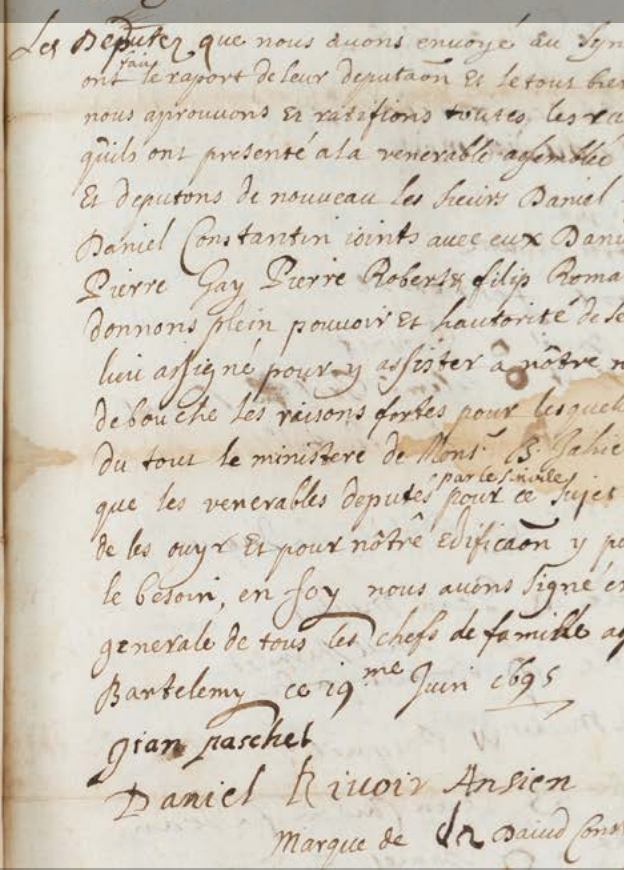 Les Deputez que nous avons envoyé au Syn
ont le raport de leur deputaõn Et le tout bie
nous aprouvons Et ratifions toutes les
quils ont presenté a la venerable asemblée
Et deputons de nouveau les sieurs Daniel
Daniel Constantin ioints avec eux Dani
Pierre Gay Pierre Robert & filip Roma
donnons plein pouvoir Et hautorité de se
lieu assigné pour y assister a nôtre n
de bouche les raisons fortes pour lesquel
du tout le ministere de Mons.r B. Jahie
par le Sinode
que les venerables deputes pour ce sujet
de les ouyr Et pour nôtre Edificaõn y po
le besoin, en foy nous avons signé en
generale de tous les chefs de famille as
Bartelemy ce 19.me Juin 1695
gian paschet
Daniel Rivoir Ansien
Marque de David Cons